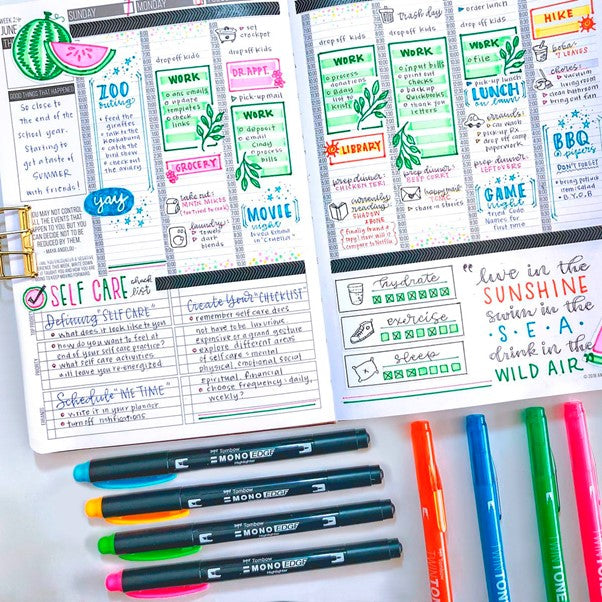 WEEK 24
JUNE
SUNDAY
MONDAY
GOOD THINGS THAT HAPPENED
So close
to the
end of the
school year.
Starting to
get a taste of
SUMMER
with friends!
YOU MAY NOT CONTROL
ALL THE EVENTS THAT
HAPPEN TO YOU, BUT YOU
CAN DECIDE NOT TO BE
REDUCED BY THEM.
MAYA ANGELOU
ZOO
outing
feed the
giraffes
yay
drop off kids
WORK
ans emails
update
templates
check
links
GROCERY
take out:
laundry:
towels
dark
blends
set
crockpot
drop off kids
DR. APPT.
pick-up mail
WORK
deposit
email
Cindy
process
bills
MOVIE
night
drop off kids
WORK
process
donations
LIBRARY
prep dinner:
CHICKEN TERI
currently
reading:
SHADOW
& BONE
(finally found a
copy! show will it
compare to Netflix)
trash day
drop off kids
WORK
input bills
print out
checks
backup
QuickBooks
thank you
letters
prep dinner:
BEEF DIP
happy mail
TIME
share in stories
order lunch
drop off kids
WORK
file
pick-up lunch
LUNCH
on lawn
errands:
car wash
pick-up RX
drop off camp
paperwork
prep dinner:
LEFTOVERS
GAME
night
tried Code
Names for
first time
order lift
HIKE
boba?
7 LEAVES
chores:
vacuum living
room
clean bathroom
bring out fan
BBQ
DON'T FORGET
bring potluck
item: salad
B.Y.O, BUT
SELF CARE check list
Defining "SELF CARE"
what does it look like to you
how do you want to feel at
end of your self care practice?
what self care activities
will leave you re-energized
Schedule "ME TIME"
write it in your planner
turn off notifications
Create Your "CHECKLIST"
remember self care does
not have to be luxurious
expensive or a grand gesture
explore different areas
of self care: mental
physical, emotional social
spiritual financial
choose frequency: daily,
weekly?
hydrate
exercise
sleep
live in the
SUNSHINE
swim in the
S·E·A·
drink in the
WILD AIR
Tombow
MONO EDGE
Highlighter
Tombow
MONO EDGE
Highlighter
Tombow
MONO EDGE
Highlighter
Tombow
MONO EDGE
Highlighter
TWINTONE
TWINTONE
TWINTONE
TWINTONE